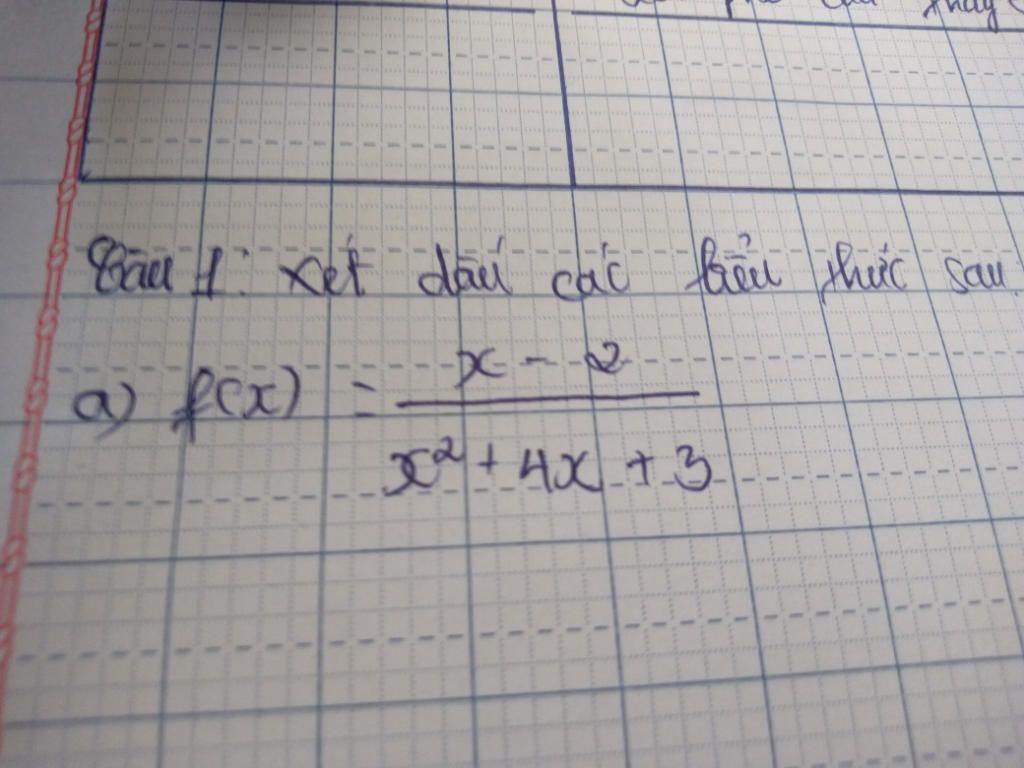 thầy
Câu 1: xét dấu các biểu thức sau:
a) f(x) = \frac{x - 2}{x² + 4x + 3}